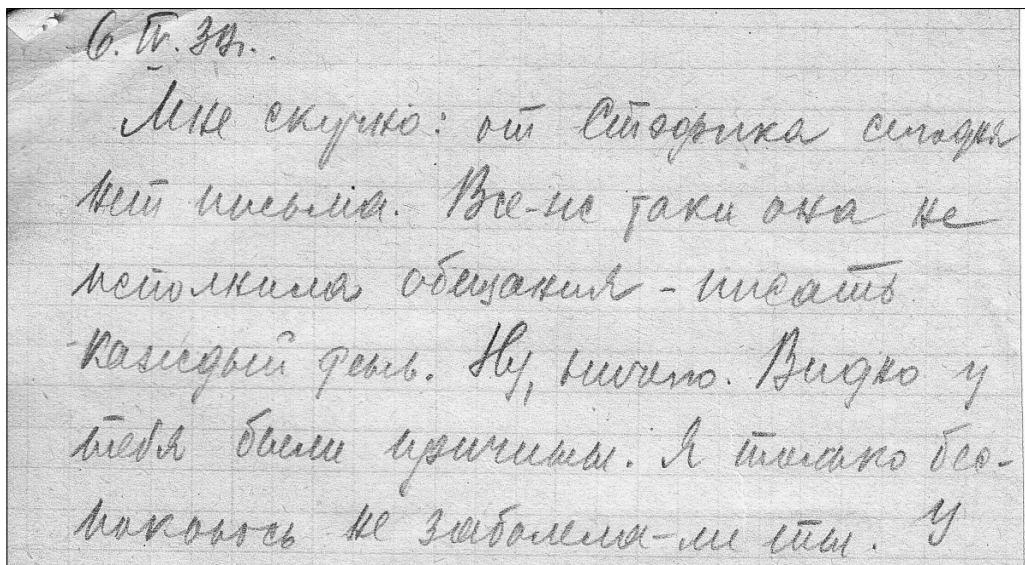 6. IV. 3
Мне скучно: от сегодня
нет письма. Все-же таки она не
исполнила обещания - писать
каждый день. Ну, ничего. Видно у
тебя были причины. Я только бес-
покоюсь не заболела-ли ты. У